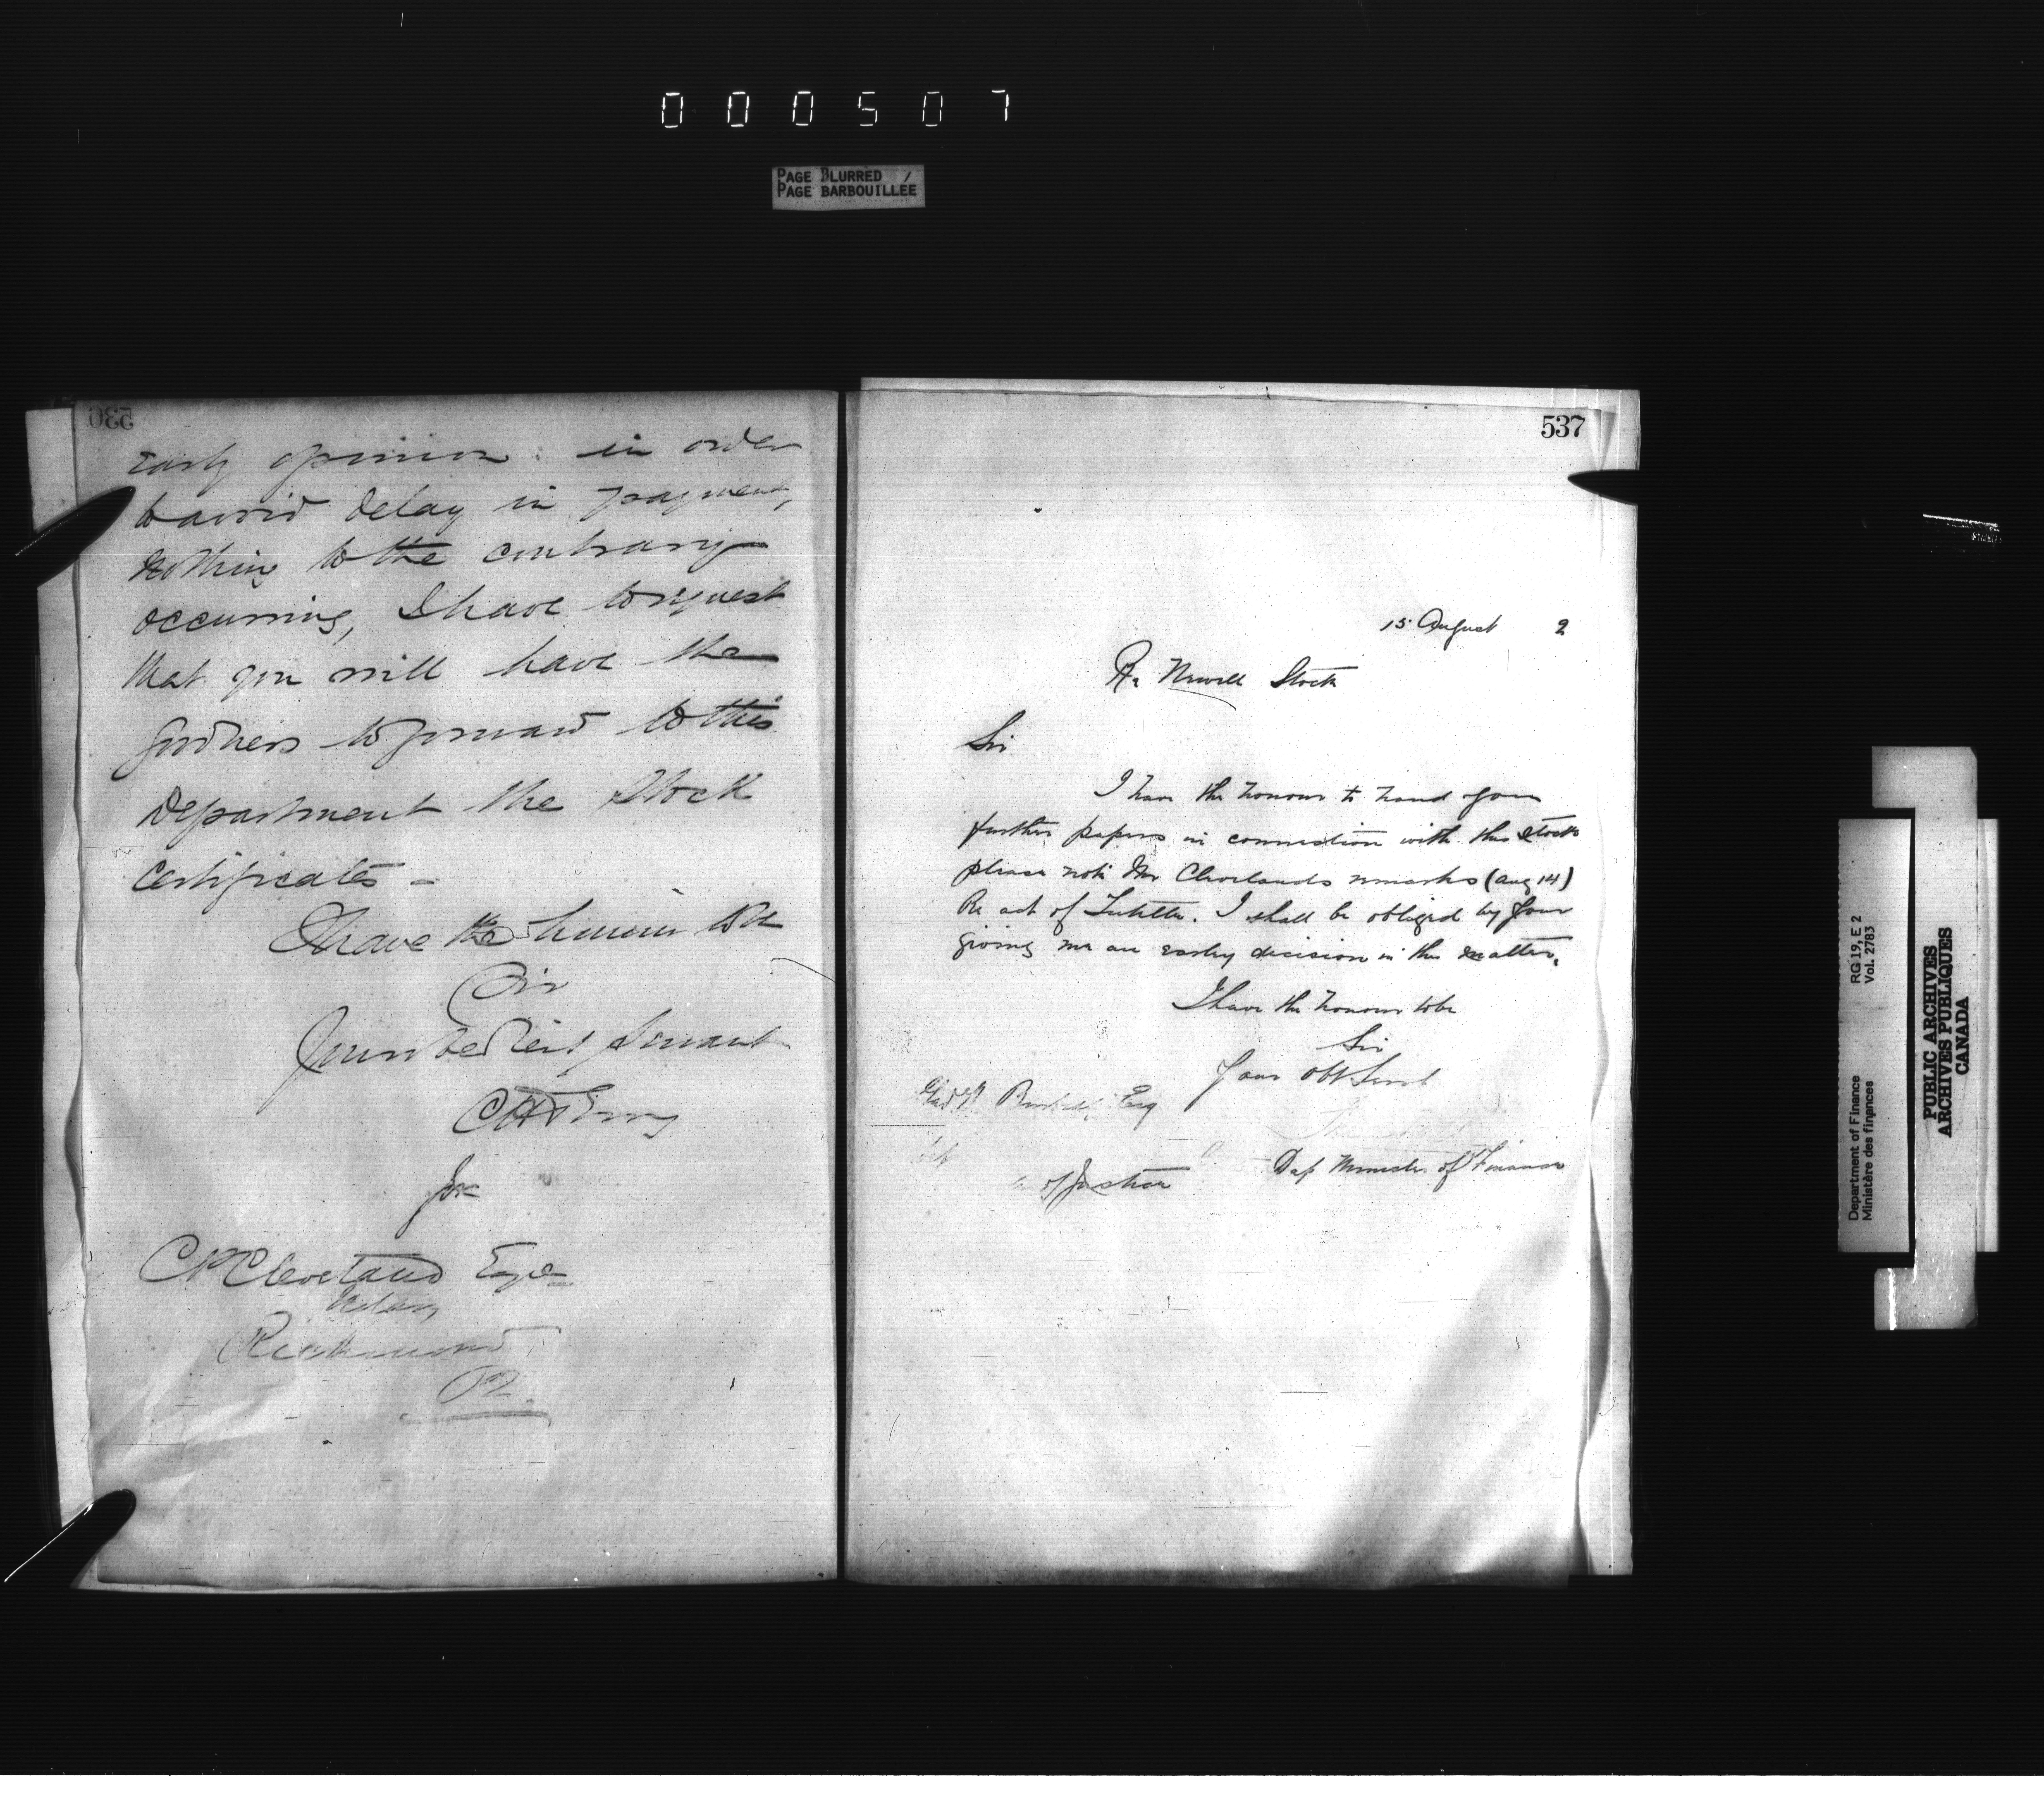 000507
PAGE BLURRED
PAGE BARBOUILLÉE
536
early opinion in order
to avoid delay in payment,
nothing to the contrary
occurring, I have to request
that you will have the
goodness to forward to this
Department the Stock
Certificates -
I have the honour to be
Sir
Your obedient Servant
for
C P Cleveland Esqre
Notary
Richmond
PQ
537
15 August 2
Re Newell Stock
Sir
I have the honour to hand you
further papers in connection with this Stock
please note Mr Clevelands remarks (aug 14)
Re act of Tutelle. I shall be obliged by your
giving me an early decision in the matter.
I have the honour to be
Sir
Your obt Servt
Esq
of Justice
Dep Minister of Finance
Department of Finance
Ministère des finances
RG 19, E 2
Vol. 2783
PUBLIC ARCHIVES
ARCHIVES PUBLIQUES
CANADA